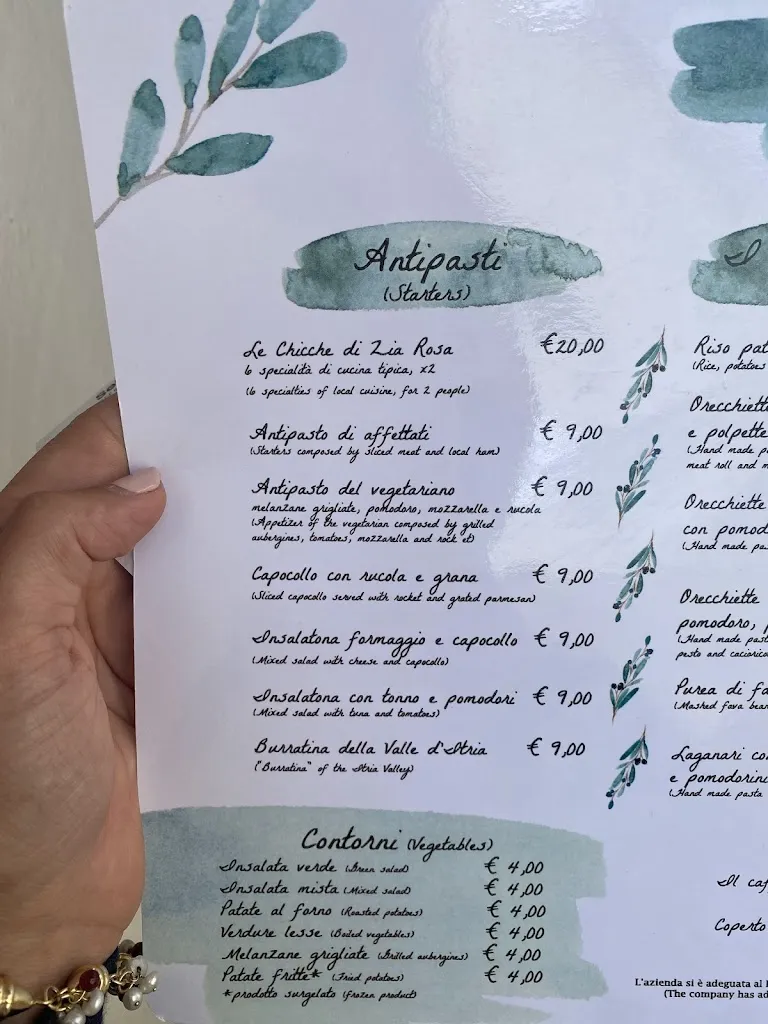 Antipasti
(Starters)
Le Chicche di Zia Rosa €20,00
6 specialità di cucina tipica, x2
(6 specialties of local cuisine, for 2 people)
Antipasto di affettati € 9,00
(Starters composed by sliced meat and local ham)
Antipasto del vegetariano € 9,00
melanzane grigliate, pomodoro, mozzarella e rucola
(Appetizer of the vegetarian composed by grilled
aubergines, tomatoes, mozzarella and rocket)
Capocollo con rucola e grana € 9,00
(Sliced capocollo served with rocket and grated parmesan)
Insalatona formaggio e capocollo € 9,00
(Mixed salad with cheese and capocollo)
Insalatona con tonno e pomodori € 9,00
(Mixed salad with tuna and tomatoes)
Burratina della Valle d'Itria € 9,00
("Burratina" of the Itria Valley)
Contorni (Vegetables)
Insalata verde (Green salad) € 4,00
Insalata mista (Mixed salad) € 4,00
Patate al forno (Roasted potatoes) € 4,00
Verdure lesse (Boiled vegetables) € 4,00
Melanzane grigliate (Grilled aubergines) € 4,00
Patate fritte* (Fried potatoes) € 4,00
*prodotto surgelato (frozen product)
I
Riso pat
(Rice, potatoes
Orecchiette
e polpette
(Hand made p
meat roll and m
Orecchiette
con pomod
(Hand made pas
Orecchiette
pomodoro, p
(Hand made past
pesto and cacioric
Purea di fa
(Mashed fava bean
Laganari co
e pomodorini
(Hand made pasta
Il caf
Coperto
L'azienda si è adeguata al
(The company has ad